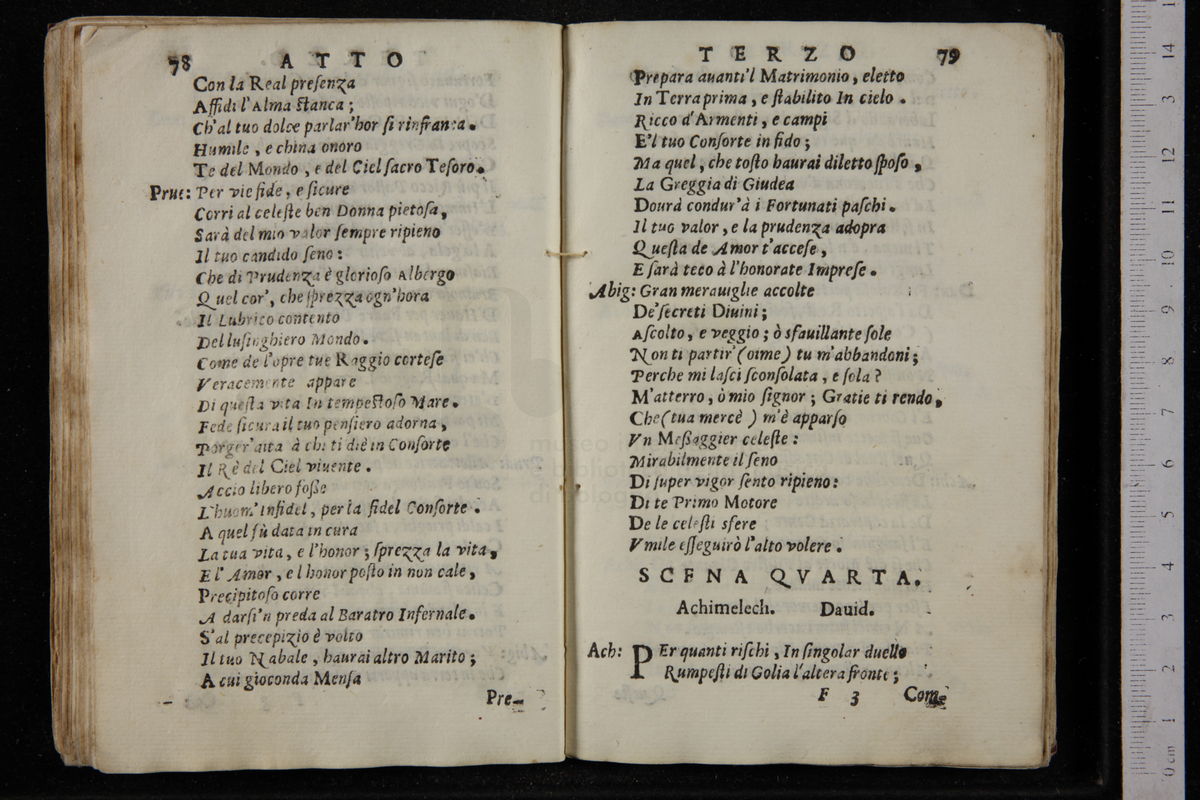 78 ATTO
Con la Real preſenza
Affidi l'Alma ſtanca;
Ch'al tuo dolce parlar'hor ſi rinfranca.
Humile, e china onoro
Te del Mondo, e del Ciel ſacro Teſoro.
Prue: Per vie fide, e ſicure
Corri al celeſte ben Donna pietoſa,
Sarà del mio valor ſempre ripieno
Il tuo candido ſeno:
Che di Prudenza è glorioſo Albergo
Quel cor', che ſprezza ogn'hora
Il Lubrico contento
Del luſinghiero Mondo.
Come de l'opre tue Raggio corteſe
Veracemente appare
Di queſta vita In tempeſtoſo Mare.
Fede ſicura il tuo penſiero adorna,
Porger'aita à chi ti diè in Conſorte
Il Rè del Ciel viuente.
Accio libero foſſe
L'huom' infidel, per la fidel Conſorte.
A quel fù data in cura
La tua vita, e l'honor; ſprezza la vita,
E l' Amor, e l honor poſto in non cale,
Precipitoſo corre
A darſi'n preda al Baratro Infernale.
S'al precepizio è volto
Il tuo Nabale, haurai altro Marito;
A cui gioconda Menſa
Pre-
TERZO 79
Prepara auanti'l Matrimonio, eletto
In Terra prima, e ſtabilito In cielo.
Ricco d'Armenti, e campi
E'l tuo Conſorte in fido;
Ma quel, che toſto haurai diletto ſpoſo,
La Greggia di Giudea
Dourà condur'à i Fortunati paſchi.
Il tuo valor, e la prudenza adopra
Queſta de Amor t'acceſe,
E ſarà teco à l'honorate Impreſe.
Abig: Gran merauiglie accolte
De'ſecreti Diuini;
Aſcolto, e veggio; ò sfauillante ſole
Non ti partir' (oime) tu m'abbandoni;
Perche mi laſci ſconſolata, e ſola?
M'atterro, ò mio ſignor; Gratie ti rendo,
Che (tua mercè) m'è apparſo
Vn Meſſaggier celeſte:
Mirabilmente il ſeno
Di ſuper vigor ſento ripieno:
Di te Primo Motore
De le celeſti sfere
Vmile eſſeguirò l'alto volere.
SCENA QVARTA.
Achimelech. Dauid.
Ach: PEr quanti riſchi, In ſingolar duello
Rumpeſti di Golia l'altera fronte;
F 3 Come